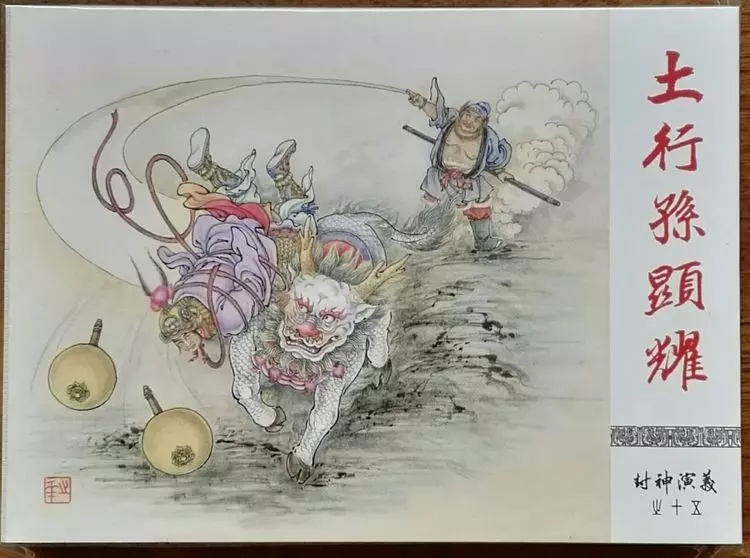 土行孫顕耀
封神演義
之十五